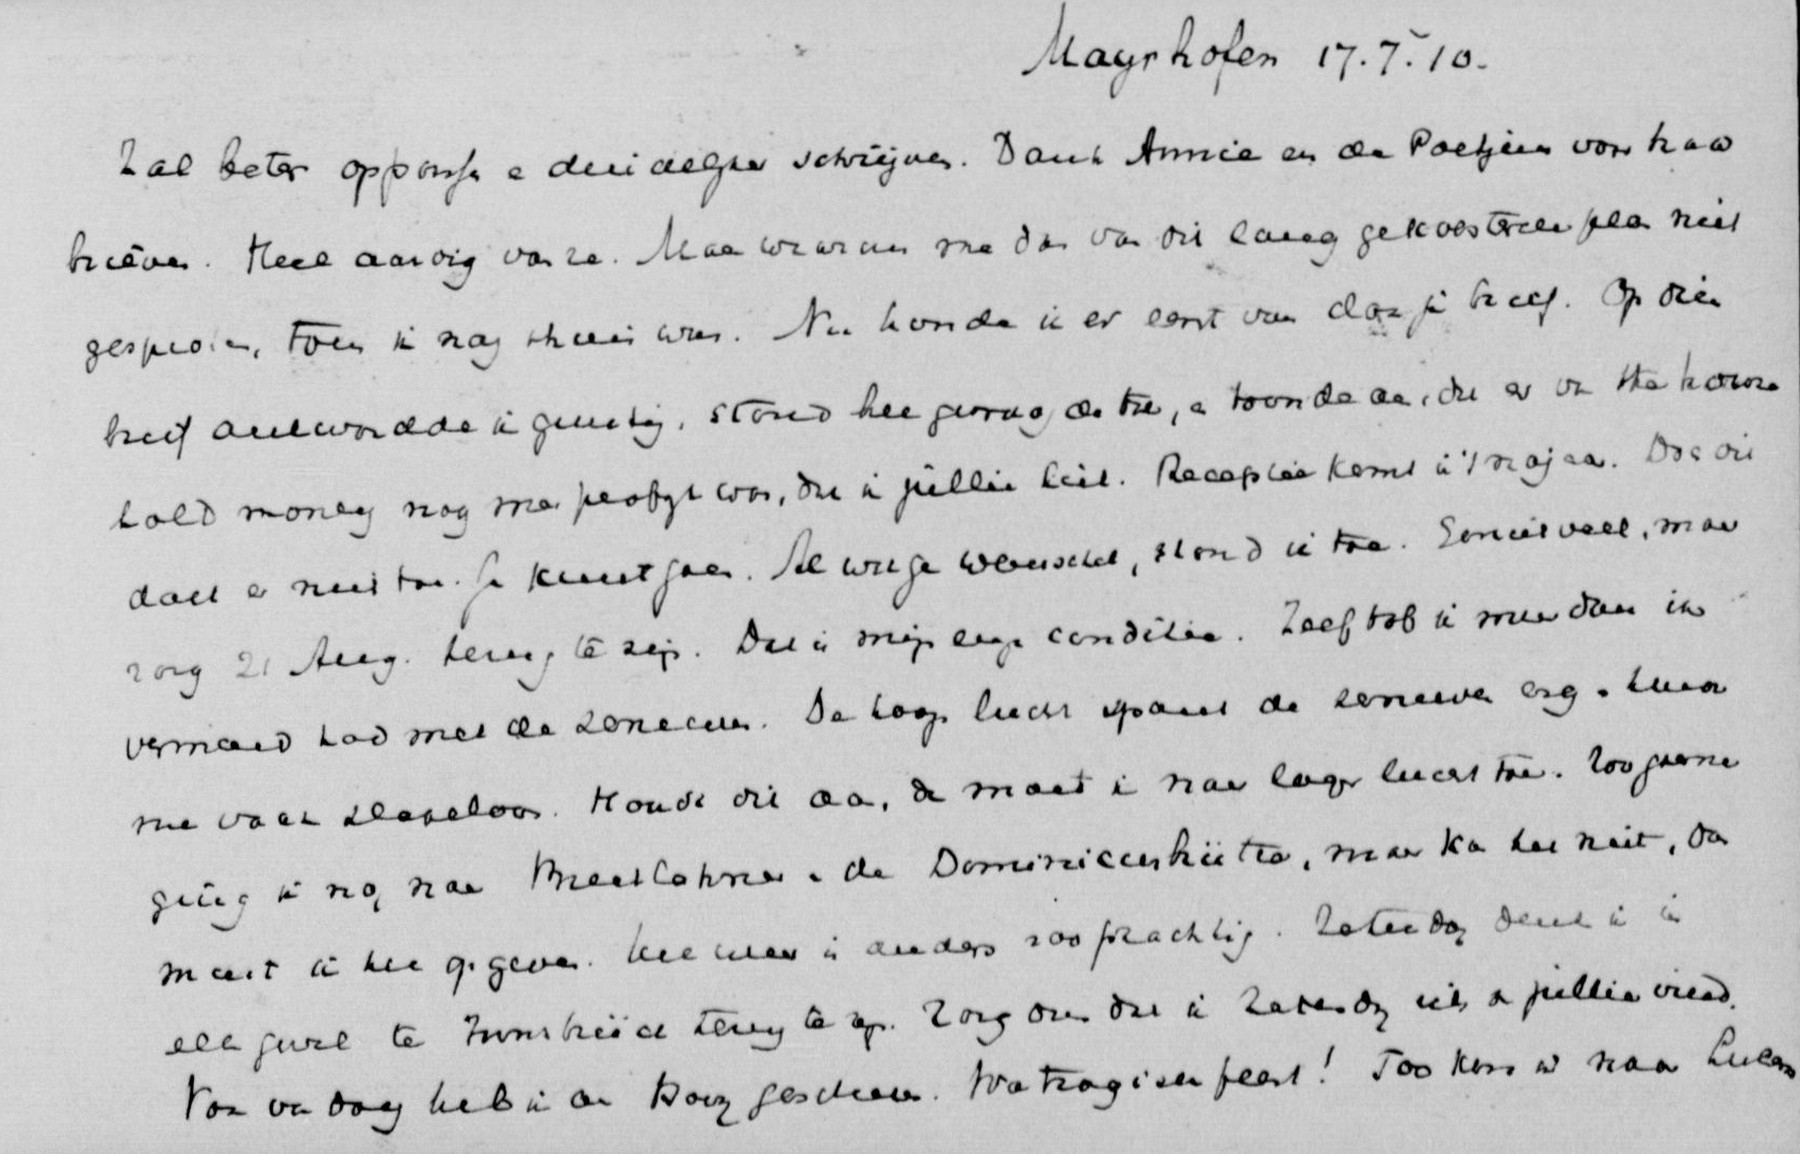 Mayrhofen 17.7.10.
Zal beter oppassen e duidelijker schrijven. Dank Annie en de Poetjens voor haar
brieven. Heel aardig van ze. Maar waarom me dan van dit lang gekoesterde plan niet
gesproken, toen ik nog thuis was. Nu hoorde ik er eerst van door je brief. Op dien
brief antwoordde ik gunstig, stond het graag toe, e toonde aan, dat er van the
hold money nog meer profyt was, dat ik jullie liet. Receptie komt in 't najaar. Doe dit
doet er niet toe. Je kunt gaan. Al wat ge wenschet, stond ik toe. Geniet veel, maar
zorg 21 Aug. terug te zijn. Dat is mijn enige conditie. Zelf tob ik meer dan ik
vermoed had met de zenuwen. De hooge lucht spant de zenuwen erg e
me vaak slapeloos. Houdt dit aan, dan moet ik naar lager lucht toe. Zoo gaarne
ging ik nog naar de Dominicushütte, maar kan het niet, dan
moet ik het opgeven. Het weer is anders zoo prachtig. Zaterdag denk ik in
elk geval te Innsbrück terug te zijn. Zorg dus dat ik Zaterdag iets van jullie vind.
Van vandaag heb ik aan geschreven. Wat tragisch feest! Too kom ik naar